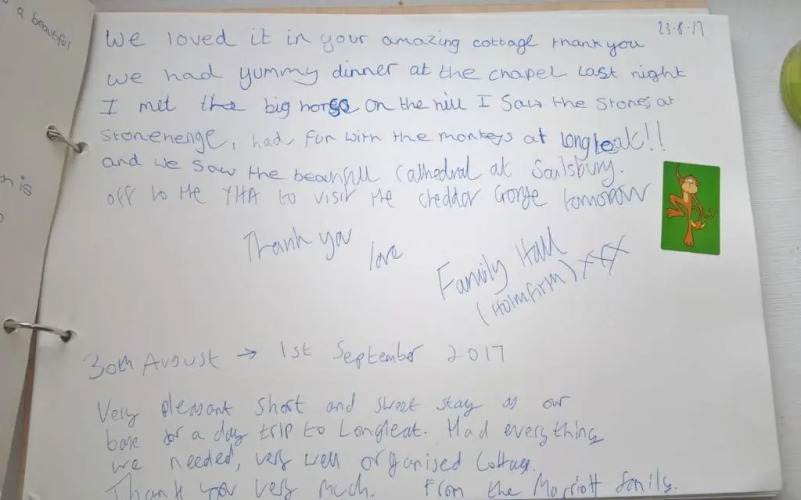 a beautiful
is
23-8-17
We loved it in your amazing cottage thank you
we had yummy dinner at the chapel last night
I met the big horse on the hill I saw the stones at
stonehenge, had fun with the monkeys at longleak!!
and we saw the beatifull Cathedral at Saulsbury.
off to the YHA to visit the cheddar Gorge tomorrow
Thank you
love
Family Hall
(Holmfirth) xxx
30th August → 1st September 2017
Very pleasant short and sweet stay as our
base for a day trip to Longleat. Had everything
we needed, very well organised Cottage.
Thank you very much. From the Marriott family.